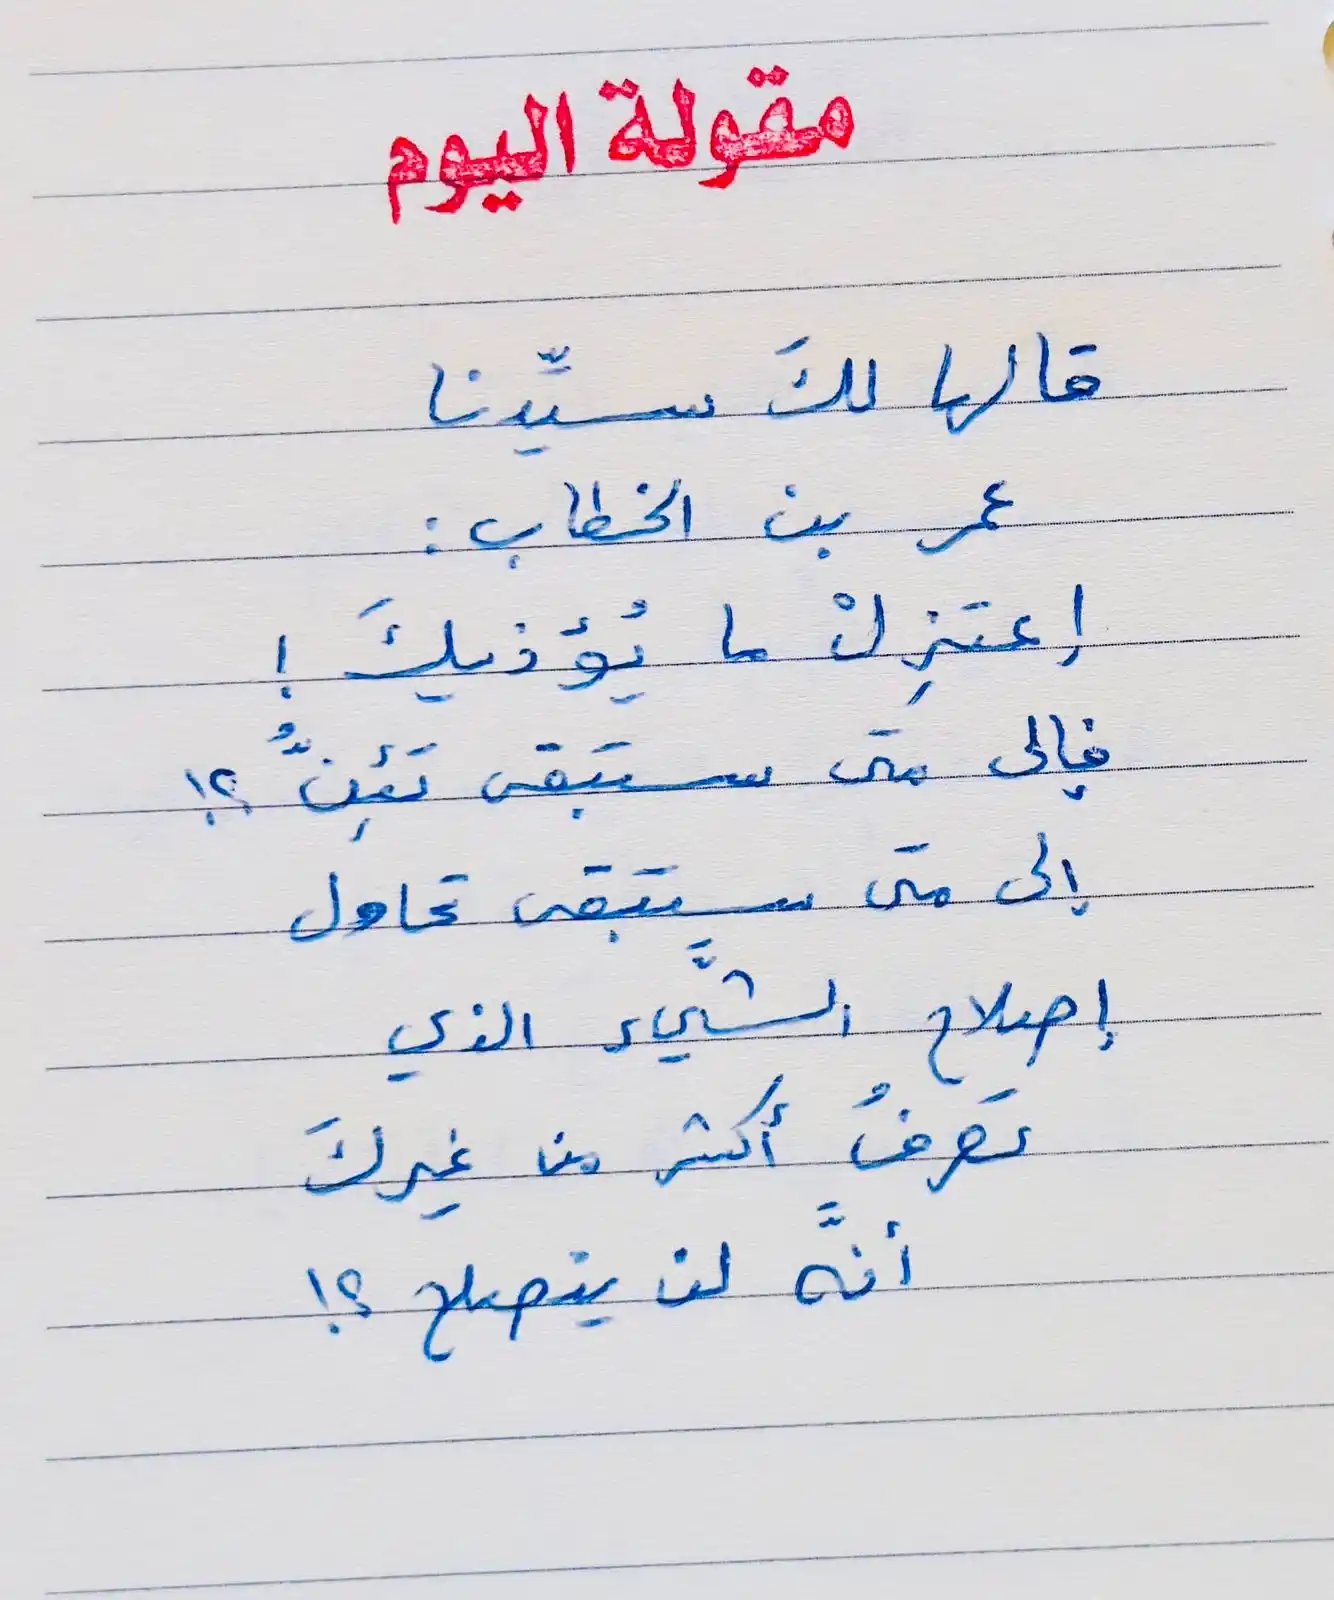 مقولة اليوم
قالها لكَ سيِّدنا
عمر بن الخطاب :
إعتَزِلْ ما يُؤذيكَ !
فإلى متَى ستَبقى تَئِنُّ ؟!
إلى متَى ستَبقى تحاول
إصلاح الشَّيء الذي
تَعرفُ أكثر من غيركَ
أنَّه لن ينصلح ؟!